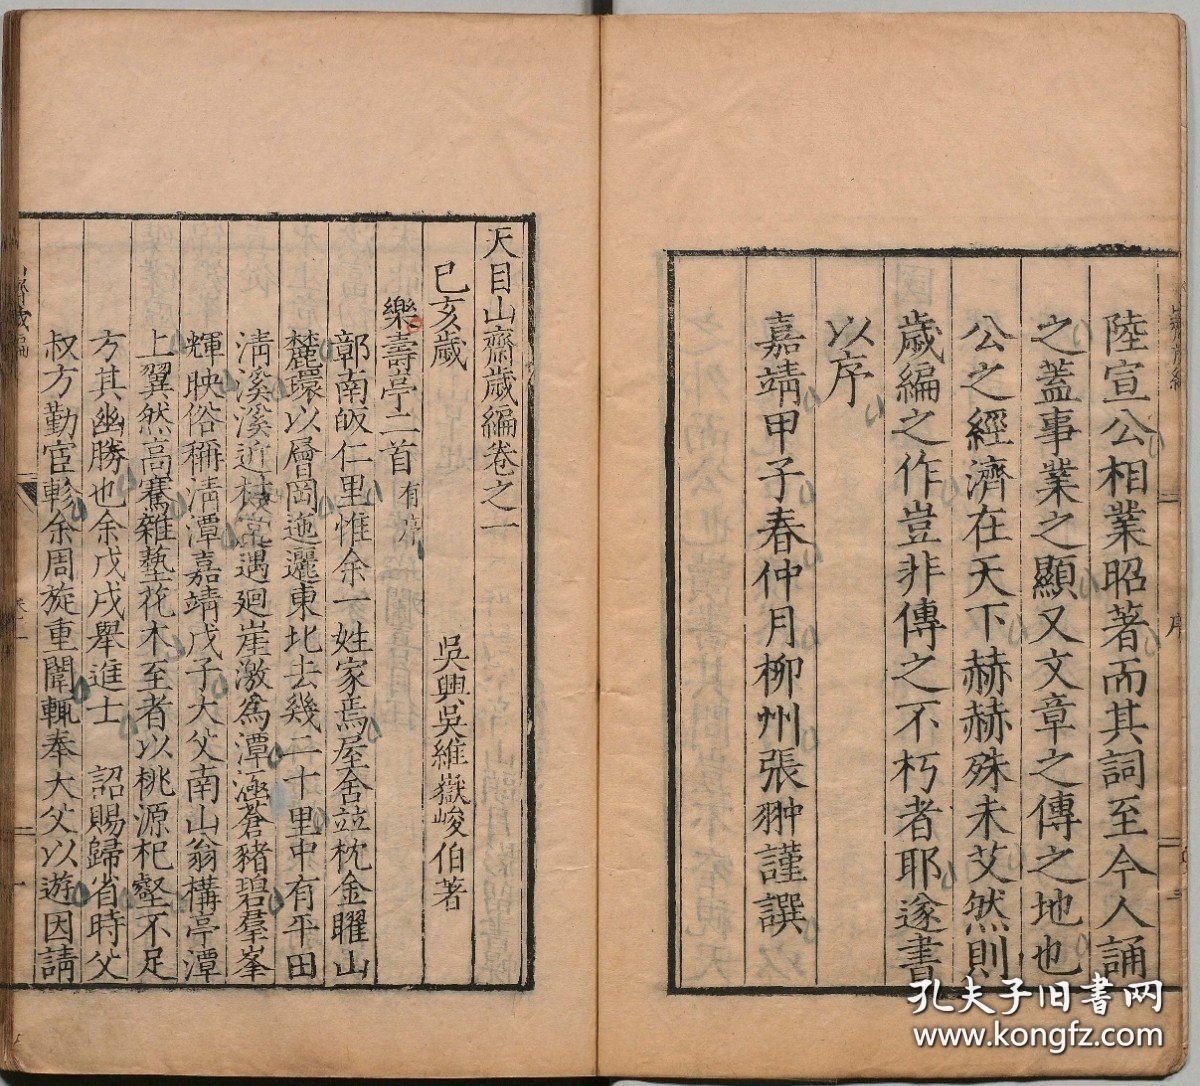 陸宣公相業昭著而其詞至今人誦
之蓋事業之顯又文章之傳之地也
公之經濟在天下赫赫殊未艾然則
歲編之作豈非傳之不朽者耶遂書
以序
嘉靖甲子春仲月柳州張翀謹譔
序
天目山齋歲編卷之一
吳興吳維嶽峻伯著
巳亥歲
樂壽亭二首有序
鄣南皈仁里惟余一姓家焉屋舍竝枕金矅山
麓環以層岡迤邐東北去幾二十里中有平田
清溪溪近村常遇迴崖激為潭涵蒼豬碧羣峯
輝映俗稱清潭嘉靖戊子大父南山翁構亭潭
上翼然高騫雜蓺花木至者以桃源杞壑不足
方其幽勝也余戊戌舉進士 詔賜歸省時父
叔方勤宦軫余周旋重闈輒奉大父以遊因請
孔夫子旧书网
www.kongfz.com